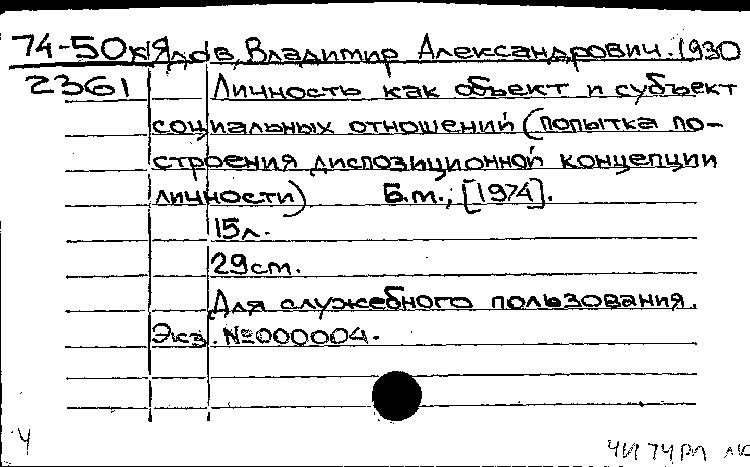 74-50к Ядов, Владимир Александрович. 1930
2361 Личность как объект и субъект
социальных отношений (попытка по-
строения диспозиционной концепции
личности) Б.м., [1974].
15л.
29cm.
Для служебного пользования.
Экз. №000004.
Ч